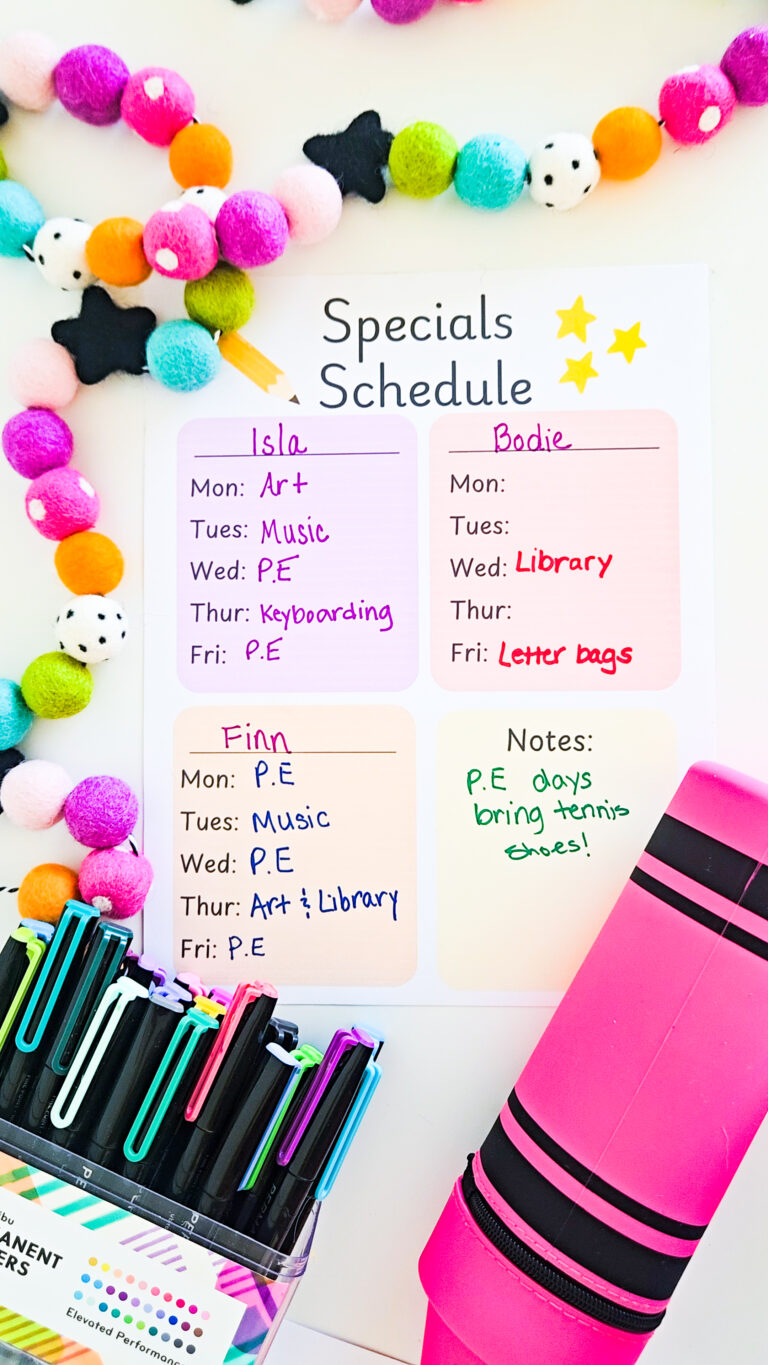 Specials
Schedule
Isla
Mon: Art
Tues: Music
Wed: P.E
Thur: Keyboarding
Fri: P.E
Bodie
Mon:
Tues:
Wed: Library
Thur:
Fri: Letter bags
Finn
Mon: P.E
Tues: Music
Wed: P.E
Thur: Art & Library
Fri: P.E
Notes:
P.E days
bring tennis
shoes!
Elevated Performance